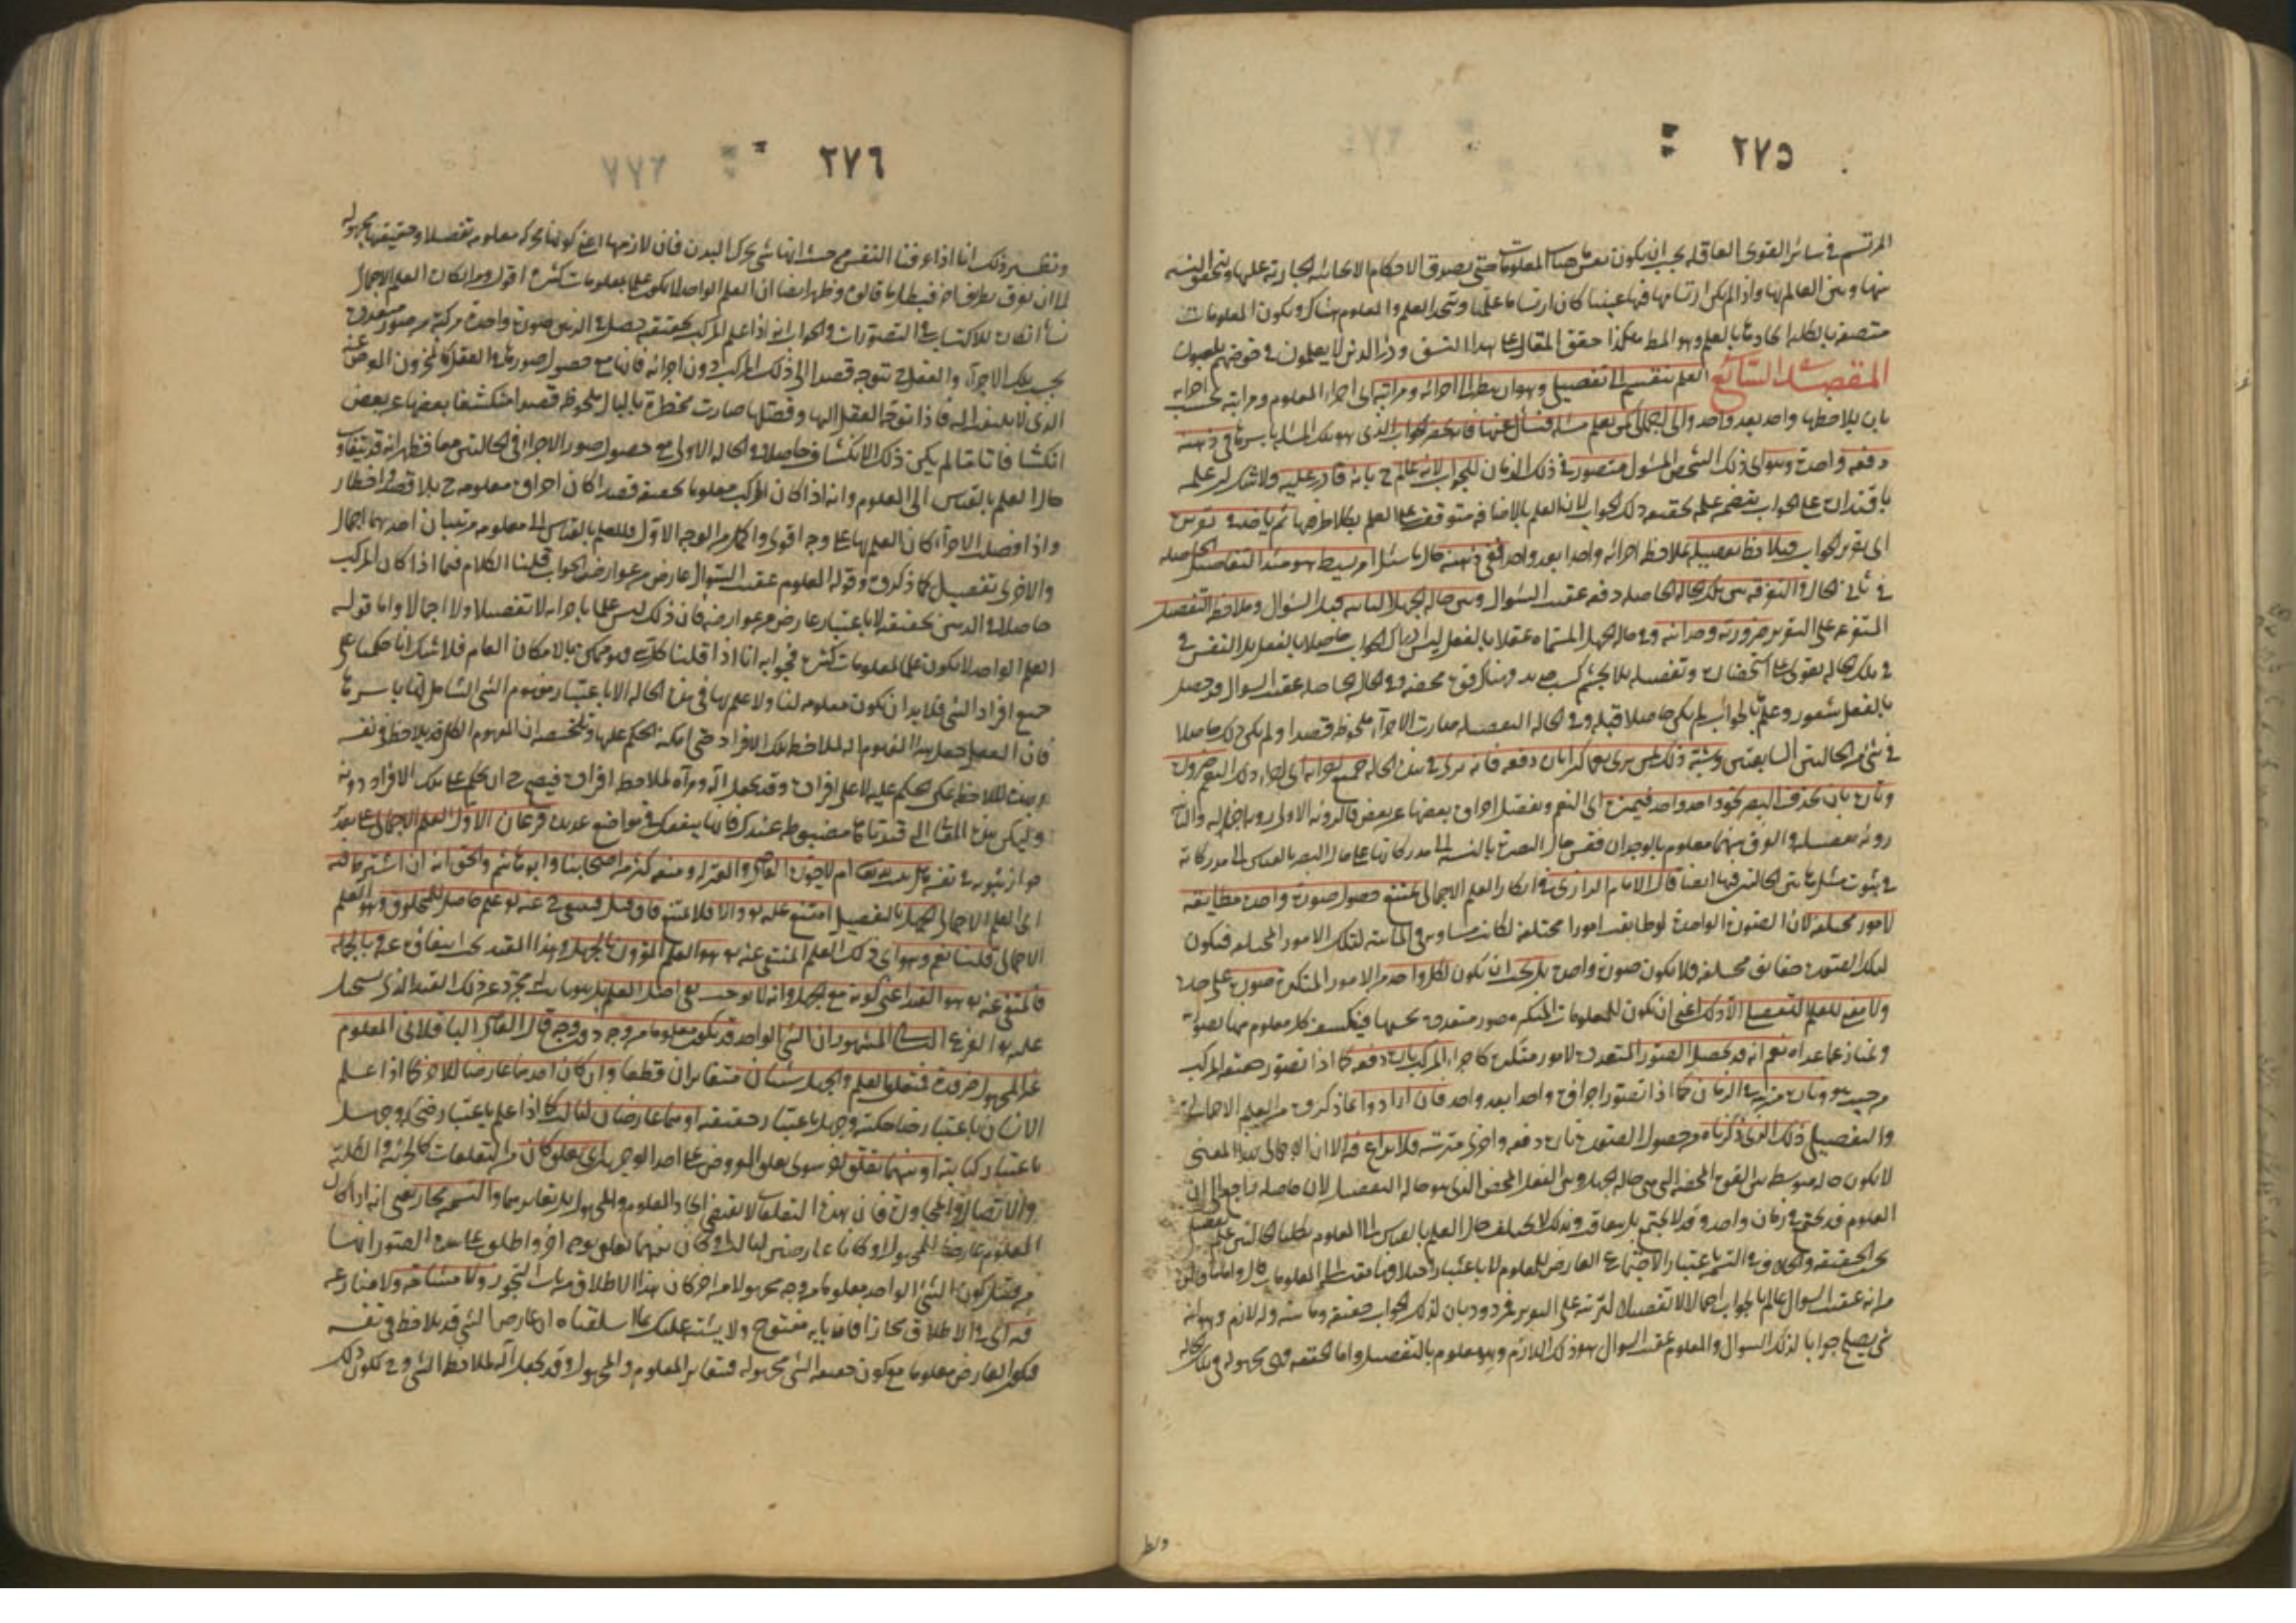 ٢٧٥
المرتسم في سائر القوى العاقلة يجب ان يكون نفس هذه المعلومات حتى يصدق الاحكام الايجابية الجارية عليها ويتحقق النسبة
بينها وبين العالم بها واذا لم يكن ارتسامها فيها عينيا كان ارتساما علميا ويتحد العلم والمعلوم هناك ويكون المعلومات
متصفة بالكلية كادعا بالعلم وهو المط هكذا حقق المقال على هذا النسق وذر الذين لا يعلمون في خوضهم يلعبون
المقصد السابع العلم ينقسم الى تفصيلي وهو ان ينظر الى اجزائه ومراتبه اى اجزاء المعلوم ومراتبه بحسب اجزائه
بان يلاحظها واحدا بعد واحد والى اجمالي كمن يعلم مسئلة فيسأل عنها فانه يحضر الجواب الذي هو تلك المسئلة باسرها في ذهنه
دفعة واحدة وهو اى ذلك الشخص المسئول متصور في ذلك الزمان للجواب لانه عالم ح بانه قادر عليه ولا شك ان علمه
باقتداره على الجواب يتضمن علمه بحقيقة ذلك الجواب لان العلم بالاضافة متوقف على العلم بكلا طرفيها ثم ياخذ في تقريره
اى تقرير الجواب فيلاحظ تفصيله بملاحظة اجزائه واحدا بعد واحد ففي ذهنه حال ما سئل امر بسيط هو مبدأ التفاصيل الحاصلة
في ثاني الحال والتفرقة بين تلك الحالة الحاصلة دفعة عقيب السؤال وبين حالة الجهل الثابتة قبل السؤال وملاحظة التفصيل
المتفرعة على التقرير ضرورية وجدانية وفي حالة الجهل المسماة عقلا بالفعل ليس ادراك الجواب حاصلا بالفعل بل النفس في
في تلك الحالة تقوى على استحضاره وتفصيله بلا تجشم كسب جديد فهناك قوة محضة وفي الحالة الحاصلة عقيب السؤال قد حصل
بالفعل شعور وعلم ما بالجواب لم يكن حاصلا قبله وفي الحالة التفصيلية صارت الاجزاء ملحوظة قصدا ولم يكن ذلك حاصلا
في شئ من الحالتين السابقتين وشبه ذلك بمن يرى نعما كثيرا تارة دفعة فانه يرى في هذه الحالة جميع اجزائه اى اجزاء ذلك النعم ضرورة
وتارة بان يحدق البصر نحو واحد واحد فيميزه اى النعم ويفصل اجزاءه بعضها عن بعض فالرؤية الاولى رؤية اجمالية والثانية
رؤية تفصيلية والفرق بينهما معلوم بالوجدان فقس حال البصيرة بالنسبة الى مدركاتها على حال البصر بالقياس الى مدركاته
في ثبوت مثل هاتين الحالتين فيها ايضا قال الامام الرازي في انكار العلم الاجمالي يمتنع حصول صورة واحدة مطابقة
لامور مختلفة لان الصورة الواحدة لو طابقت امورا مختلفة لكانت مساوية في الماهية لتلك الامور المختلفة فيكون
لتلك الصورة حقائق مختلفة فلا يكون صورة واحدة بل يجب ان يكون لكل واحد من الامور المتكثرة صورة على حدة
ولا معنى للعلم التفصيلي الا ذلك اعني ان يكون للمعلومات المتكثرة صور متعددة بحسبها فينكشف كل معلوم منها بصورته
ويمتاز عما عداه نعم انه قد يحصل الصور المتعددة لامور متكثرة كاجزاء المركب تارة دفعة كما اذا تصور حقيقة المركب
من حيث هو وتارة مترتبة في الزمان كما اذا تصور اجزاءه واحدا بعد واحد فان ارادوا بما ذكروه من العلم الاجمالي
والتفصيلي ذلك الذي ذكرناه من حصول الصورة تارة دفعة واخرى مترتبة فلا نزاع فيه الا ان الاجمالي بهذا المعنى
لا يكون حالة متوسطة بين القوة المحضة التي هي حالة الجهل وبين الفعل المحض الذي هو حالة التفصيل لان حاصله راجع الى ان
العلوم قد يجتمع في زمان واحد وقد لا يجتمع بل يتعاقب وبذلك لا يختلف حال العلم بالقياس الى المعلوم بل كلتا الحالتين علم تفصيلي
بحسب الحقيقة والخلاف في التسمية باعتبار الاجتماع العارض للعلوم لا باعتبار اختلافها مقيسة الى المعلومات قال واما قولهم
من انه عقيب السؤال عالم بالجواب اجمالا لا تفصيلا لترتبه على التقرير فمردود بان لذلك الجواب حقيقة وماهية وله لازم وهو انه
شئ يصلح جوابا لذلك السؤال والمعلوم عقيب السؤال هو ذلك اللازم وهو معلوم بالتفصيل واما الحقيقة فهي مجهولة في تلك الحالة
٢٧٦
ونظير ذلك انا اذا عرفنا النفس من حيث انها شئ يحرك البدن فان لازمها اعني كونها محركة معلومة تفصيلا وحقيقتها مجهولة
الى ان نعرف بطريق اخر فبطل ما قالوه وظهر ايضا ان العلم الواحد لا يكون علما بمعلومات كثيرة اقول ومن انكار العلم الاجمالي
نشأ انكاره للاكتساب في التصورات والجواب انه اذا علم المركب بحقيقته حصل في الذهن صورة واحدة مركبة من صور متعددة
بحسب تلك الاجزاء والعقل ح متوجه قصدا الى ذلك المركب دون اجزائه فانها مع حصول صورها في العقل كالمخزون المعرض عنه
الذي لا يلتفت اليه فاذا توجه العقل اليها وفصلها صارت مخطرة بالبال ملحوظة قصدا منكشفا بعضها عن بعض
انكشافا تاما لم يكن ذلك الانكشاف حاصلا في الحالة الاولى مع حصول صور الاجزاء في الحالتين معا فظهر انه قد يتفاوت
حال العلم بالقياس الى المعلوم وانه اذا كان المركب معلوما بحقيقته قصدا كان اجزاؤه معلومة ح بلا قصد واخطار
واذا فصلت الاجزاء كان العلم بها على وجه اقوى واكمل من الوجه الاول فللعلم بالقياس الى معلومه مرتبتان احديهما اجمال
والاخرى تفصيل كما ذكروه وقوله المعلوم عقيب السؤال عارض من عوارض الجواب قلنا الكلام فيما اذا كان المركب
حاصلا في الذهن بحقيقته لا باعتبار عارض من عوارضه فان ذلك ليس علما باجزائه لا تفصيلا ولا اجمالا واما قوله
العلم الواحد لا يكون علما لمعلومات كثيرة فجوابه انا اذا قلنا كل شئ فهو ممكن بالامكان العام فلا شك انا حكمنا على
جميع افراد الشئ فلا بد ان تكون معلومة لنا ولا علم بها في هذه الحالة الا باعتبار مفهوم الشئ الشامل لها باسرها
فان العقل جعل هذا المفهوم الة لملاحظة تلك الافراد حتى امكنه الحكم عليها وتلخيصه ان المفهوم الكلي قد يلاحظ في نفسه
وبهذه الملاحظة يمكن الحكم عليه لا على افراده وقد يجعل الة ومرآة لملاحظة افراده فيصح ح ان يحكم على تلك الافراد دونه
وليكن هذه المقالة التي قيدناها مضبوطة عندك فانها ينفعك في مواضع عديدة فرعان الاول العلم الاجمالي على تقدير
جواز ثبوته في نفسه هل يثبت لله تعالى ام لا جوزه القاضي والمعتزلة ومنعه كثير من اصحابنا وابو هاشم والحق انه ان اشترط فيه
اى العلم الاجمالي الجهل بالتفصيل امتنع عليه تعالى والا فلا يمتنع فان قيل فينتفي ح عنه تعالى علم حاصل للمخلوق وهو العلم
الاجمالي قلنا نعم وهو اى ذلك العلم المنتفي عنه تعالى هو العلم المقرون بالجهل وهذا القيد يجب انتفاؤه عنه وبالجملة
فالمنتفي عنه تعالى هو القيد اعني كونه مع الجهل وانه لا يوجب نفي اصل العلم بل هو ثابت له مجردا عن ذلك القيد الذي يستحيل
عليه تعالى الفرع الثاني المشهور ان الشئ الواحد قد يكون معلوما من وجه دون وجه قال القاضي الباقلاني المعلوم
غير المجهول ضرورة فمتعلق العلم والجهل شيئان متغايران قطعا وان كان احدهما عارضا للاخر كما اذا علم
الانسان باعتبار ضاحكيته وجهل باعتبار حقيقته او هما عارضان لثالث كما اذا علم باعتبار ضحكه وجهل
باعتبار كتابته او بينهما تعلق اخر سوى تعلق العروض على احد الوجهين اى تعلق كان من التعلقات كالجزئية والكلية
والاتصال والمجاورة فان هذه التعلقات لا يقتضي اتحاد المعلوم والمجهول بل تغايرهما والتسمية مجاز يعني انه اذا كان
المعلوم عارضا للمجهول او كانا عارضين لثالث او كان بينهما تعلق بوجه اخر واطلق على هذه الصور انها
من قبيل كون الشئ الواحد معلوما من وجه مجهولا من اخر كان هذا الاطلاق من باب التجوز ولا مشاحة ولا منازعة
فيه اى في الاطلاق مجازا فان بابه مفتوح ولا يشتبه عليك مما اسلفناه ان عارض الشئ قد يلاحظ في نفسه
فيكون العارض معلوما مع كون حقيقة الشئ مجهولة فيتغاير المعلوم والمجهول وقد يجعل آلة لملاحظة الشئ وح يكون ذلك